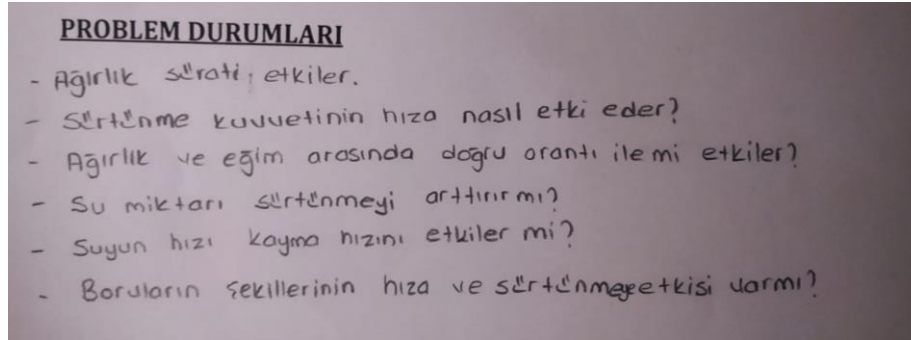 PROBLEM DURUMLARI
- Ağırlık sürati etkiler.
- Sürtünme kuvvetinin hıza nasıl etki eder?
- Ağırlık ve eğim arasında doğru orantı ile mi etkiler?
- Su miktarı sürtünmeyi arttırır mı?
- Suyun hızı kayma hızını etkiler mi?
- Boruların şekillerinin hıza ve sürtünmeye etkisi varmı?